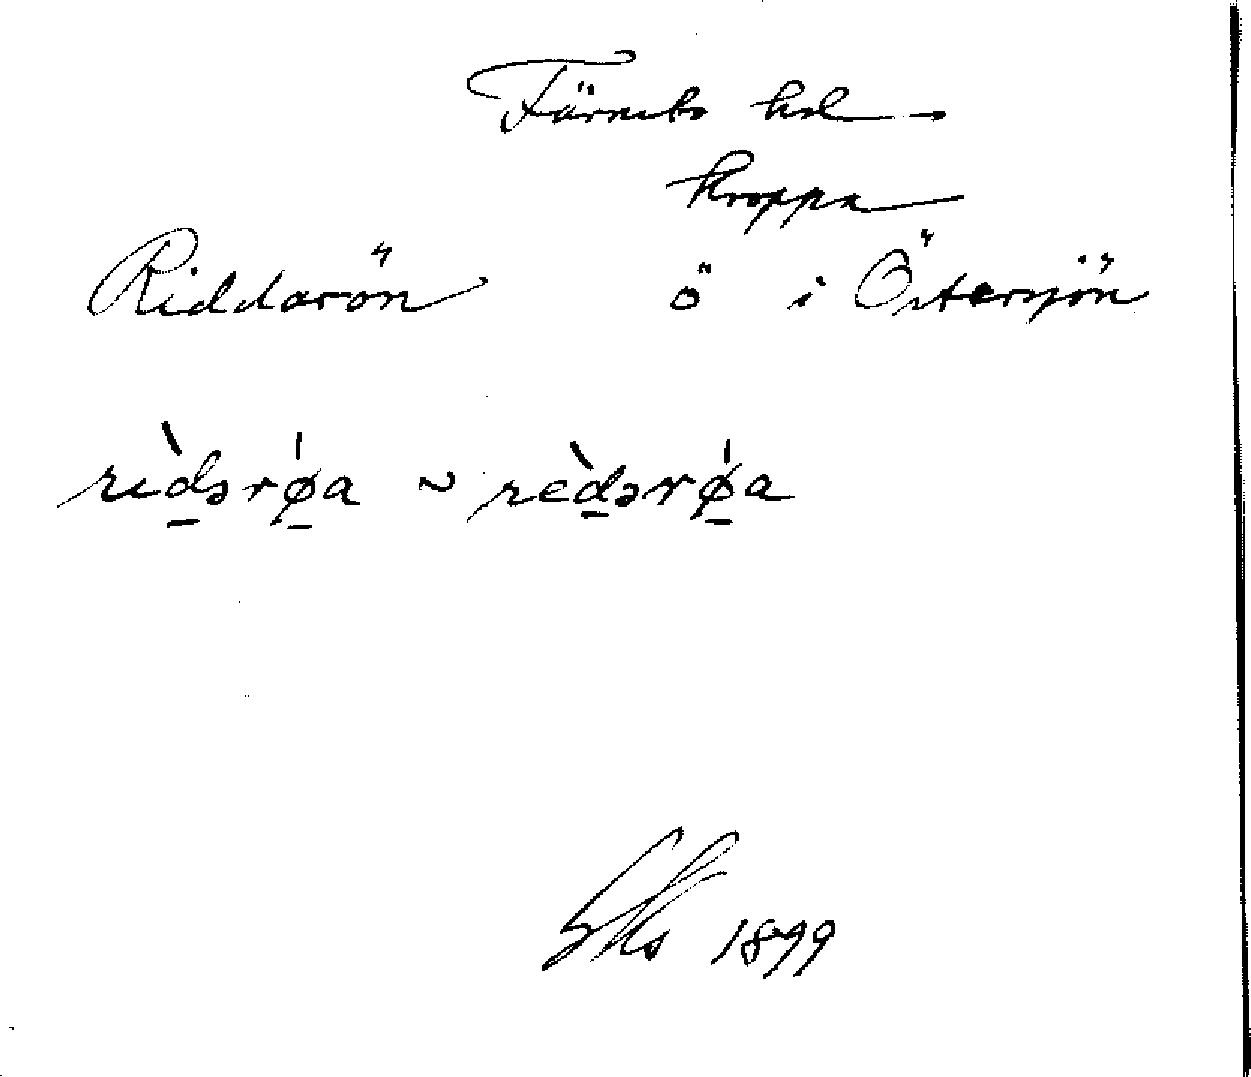 Färnebo hd
Kroppa
Riddarön ö i Östersjön
rìdərø̍a ~ rèdərø̍a
1899